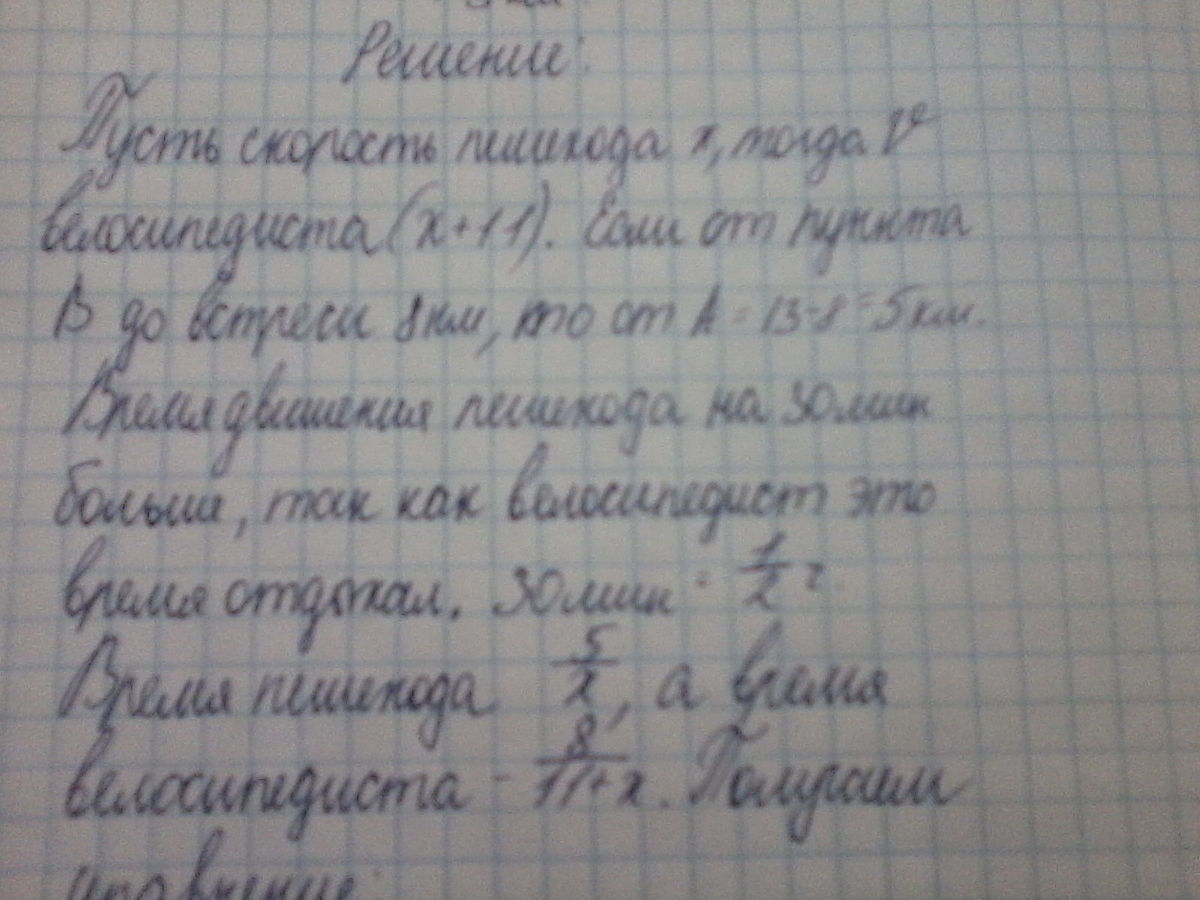 Решение:
Пусть скорость пешехода x, тогда V
велосипедиста (x+11). Если от пункта
В до встречи 8км, то от А = 13-8=5км.
Время движения пешехода на 30мин
больше, так как велосипедист это
время отдыхал. 30мин = 1/2 ч.
Время пешехода 5/x, а время
велосипедиста - 8/11+x. Получаем
уравнение: